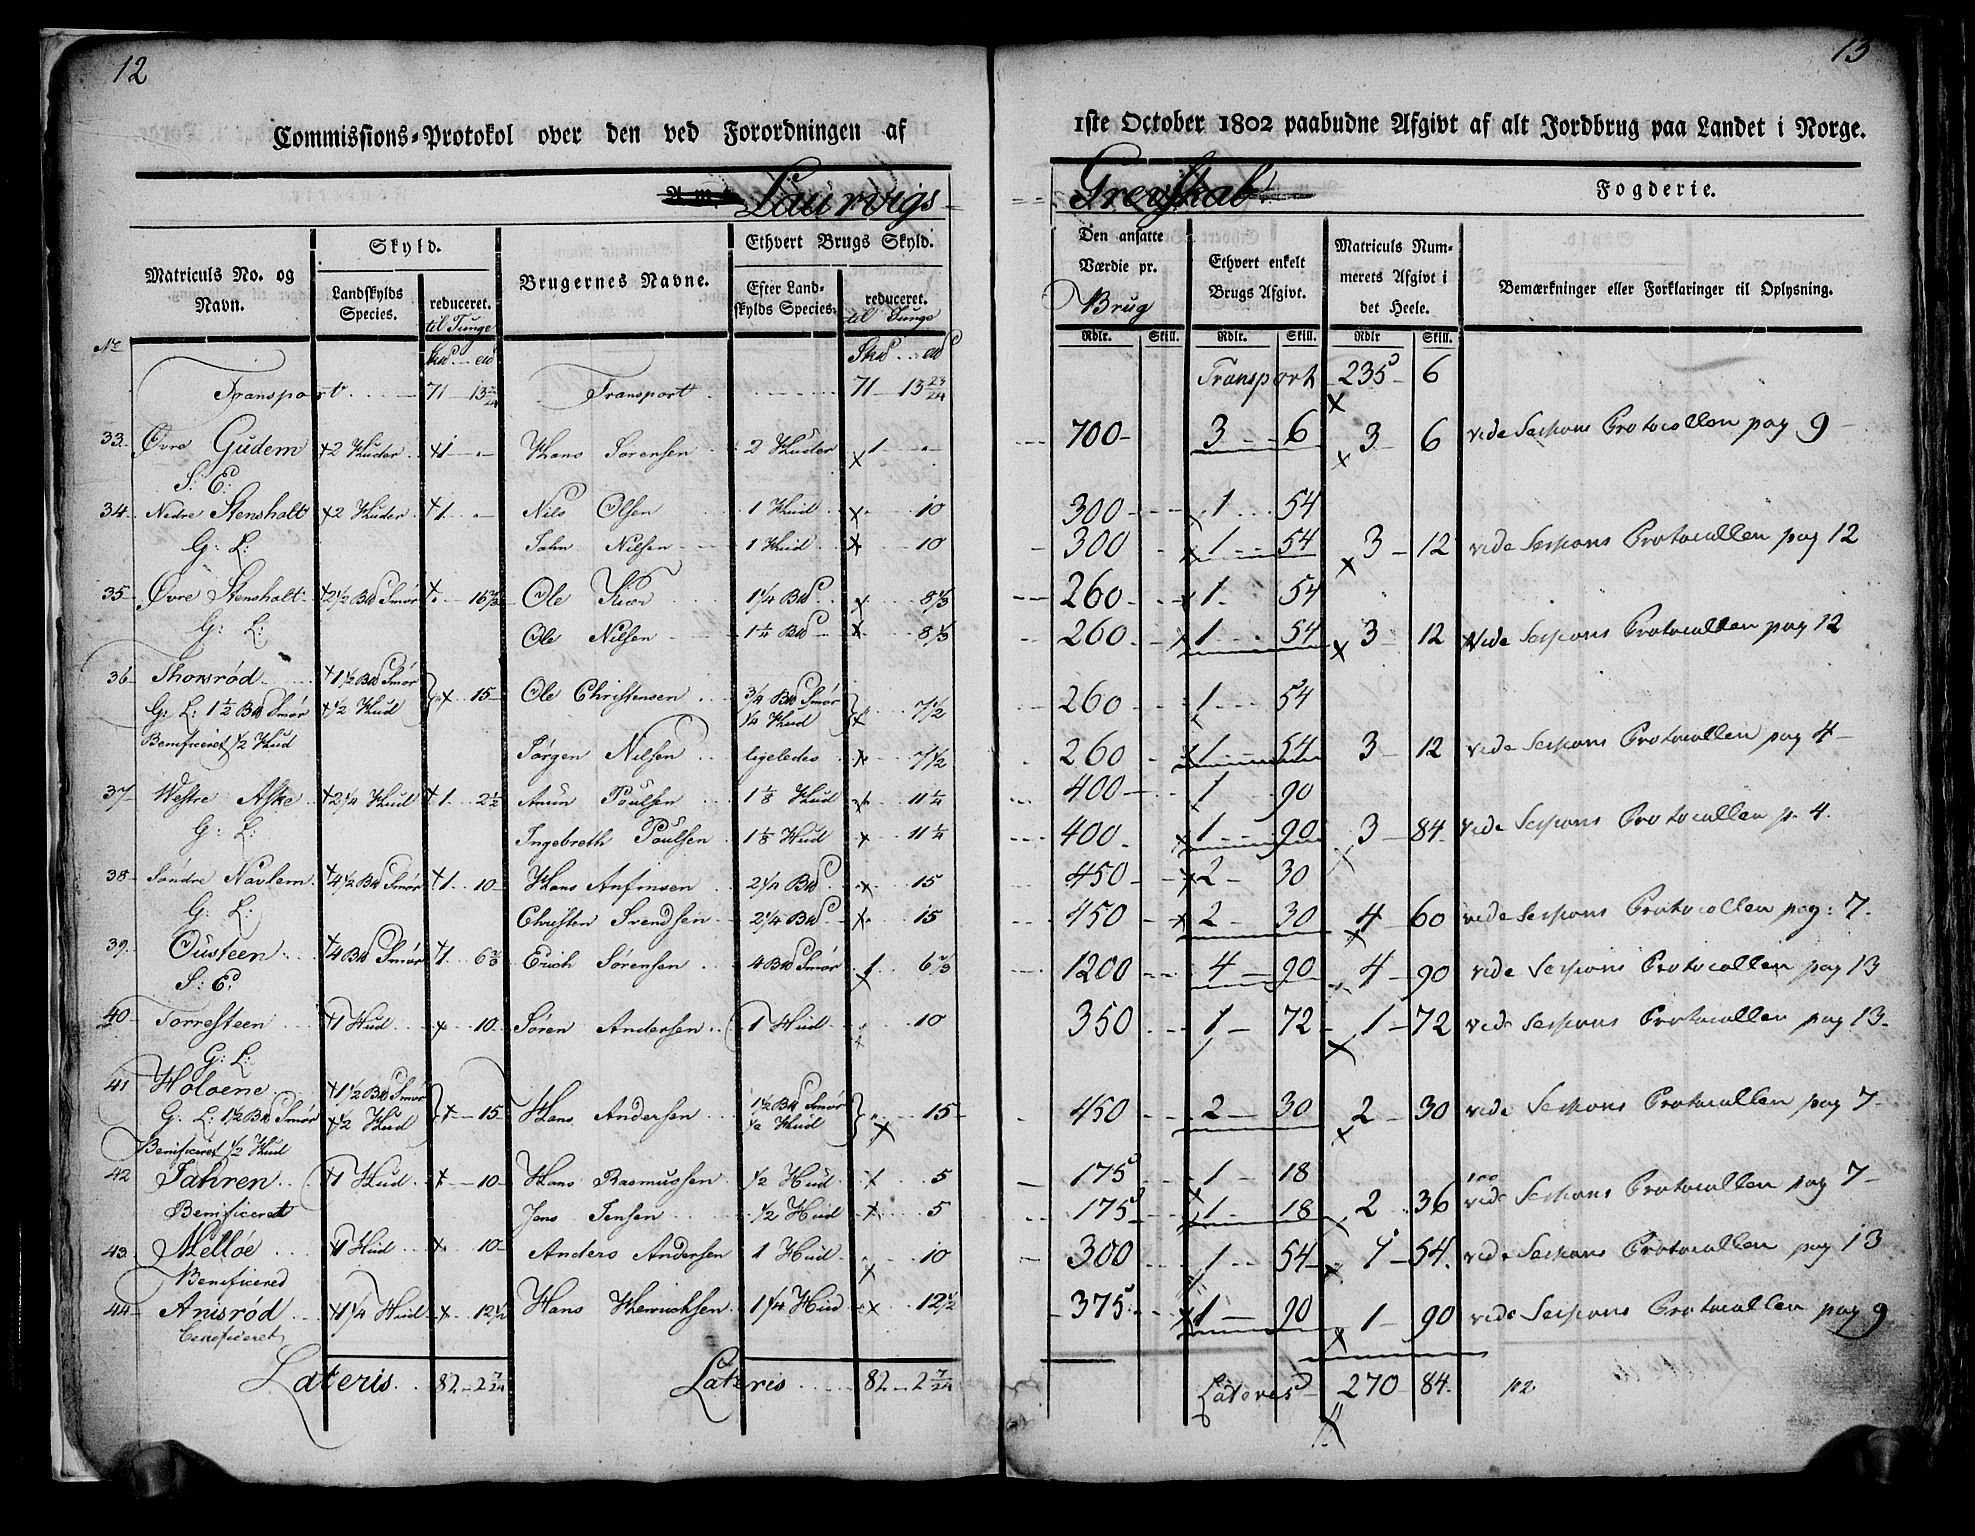 12
13
Commissions-Protokol over den ved Forordningen af 1ste October 1802 paabudne Afgivt af alt Jordbrug paa Landet i Norge.
Laurvigs Grevskab Fogderie.
Matriculs No. og Navn.
Skyld.
Landskylds Species.
reduceret. til Tunge
Brugernes Navne.
Ethvert Brugs Skyld.
Efter Landskylds Species.
reduceret. til Tunge
Den ansatte Værdie pr. Brug
Ethvert enkelt Brugs Afgivt.
Matriculs Nummerets Afgivt i det Heele.
Bemærkninger eller Forklaringer til Oplysning.
Rdlr. Skill. Rdlr. Skill. Rdlr Skill.
Transport 71 13 23/24 Transport 71 13 23/24 Transport 235 6
33. Øvre Gudem 2 Huder 1 Hans Sørensen 2 Huder 1 700 3 6 3 6 vide Sessions Protocollen pag 9
S: E:
34 Nedre Stensholt 2 Huder 1 Nils Olsen 1 Hud 10 300 1 54
G: L: Jahn Nilsen 1 Hud 10 300 1 54 3 12 vide Sessions Protocollen pag 12
35 Øvre Stensholt 2 1/2 Bd Smør 16 2/3 Ole 1 1/4 Bd 8 1/3 260 1 54
G: L: Ole Nilsen 1 1/4 Bd 8 1/3 260 1 54 3 12 vide Sessions Protocollen pag 12
36 Thorsrød 1 1/2 Bd Smør
G: L: 1 1/2 Bd Smør 1/2 Hud 15 Ole Christensen 3/4 Bd Smør 1/4 Hud 7 1/2 260 1 54
Benificeret 1/2 Hud
Jørgen Nilsen ligeledes 7 1/2 260 1 54 3 12 vide Sessions Protocollen pag 4
37 Westre Aske 2 1/4 Hud 1 2 1/2 Anun Poulsen 1 1/8 Hud 11 1/4 400 1 90
G: L: Ingebreth Poulsen 1 1/8 Hud 11 1/4 400 1 90 3 84 vide Sessions Protocollen p. 4.
38 Søndre Navlem 4 1/2 Bd Smør 1 10 Hans Anfinsen 2 1/4 Bd 15 450 2 30
G: L: Christen Svendsen 2 1/4 Bd 15 450 2 30 4 60 vide Sessions Protocollen pag: 7.
39. Ousteen 4 Bd Smør 1 6 2/3 Erich Sørensen 4 Bd Smør 1 6 2/3 1200 4 90 4 90 vide Sessions Protocollen pag 13
S: E:
40 Torresteen 1 Hud 10 Søren Andersen 1 Hud 10 350 1 72 1 72 vide Sessions Protocollen pag 13.
G: L:
41 Holvene 1 1/2 Bd Smør
G: L: 1 1/2 Bd Smør 1/2 Hud 15 Hans Andersen 1 1/2 Bd Smør 1/2 Hud 15 450 2 30 2 30 vide Sessions Protocollen pag 7
Benificeret 1/2 Hud
42 Jahren 1 Hud 10 Hans Rasmussen 1/2 Hud 5 175 1 18
Benificeret Jens Jensen 1/2 Hud 5 175 1 18 2 36 vide Sessions Protocollen pag 7
43 Melløe 1 Hud 10 Anders Andersen 1 Hud 10 300 1 54 1 54. vide Sessions Protocollen pag 13
Benificered
44 Anisrød 1 1/4 Hud 12 1/2 Hans Henrichsen 1 1/4 Hud 12 1/2 375 1 90 1 90 vide Sessions Protocollen pag 9
Benificeret
Lateris 82 2 7/24 Lateris 82 2 7/24 Lateris 270 84.